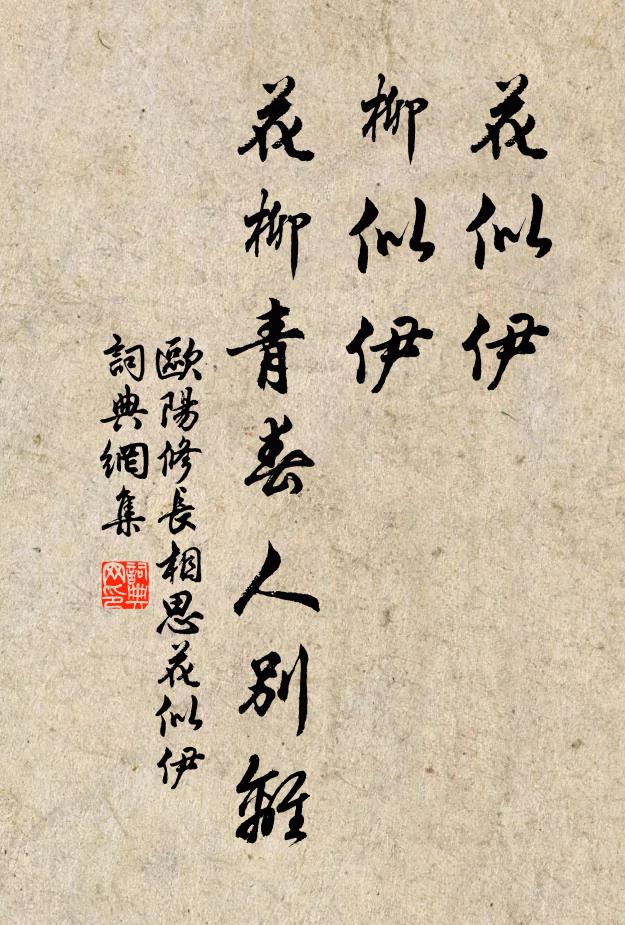 花似伊
柳似伊
花柳青春人別離
歐陽修長相思花似伊
詞典網集
詞典网印